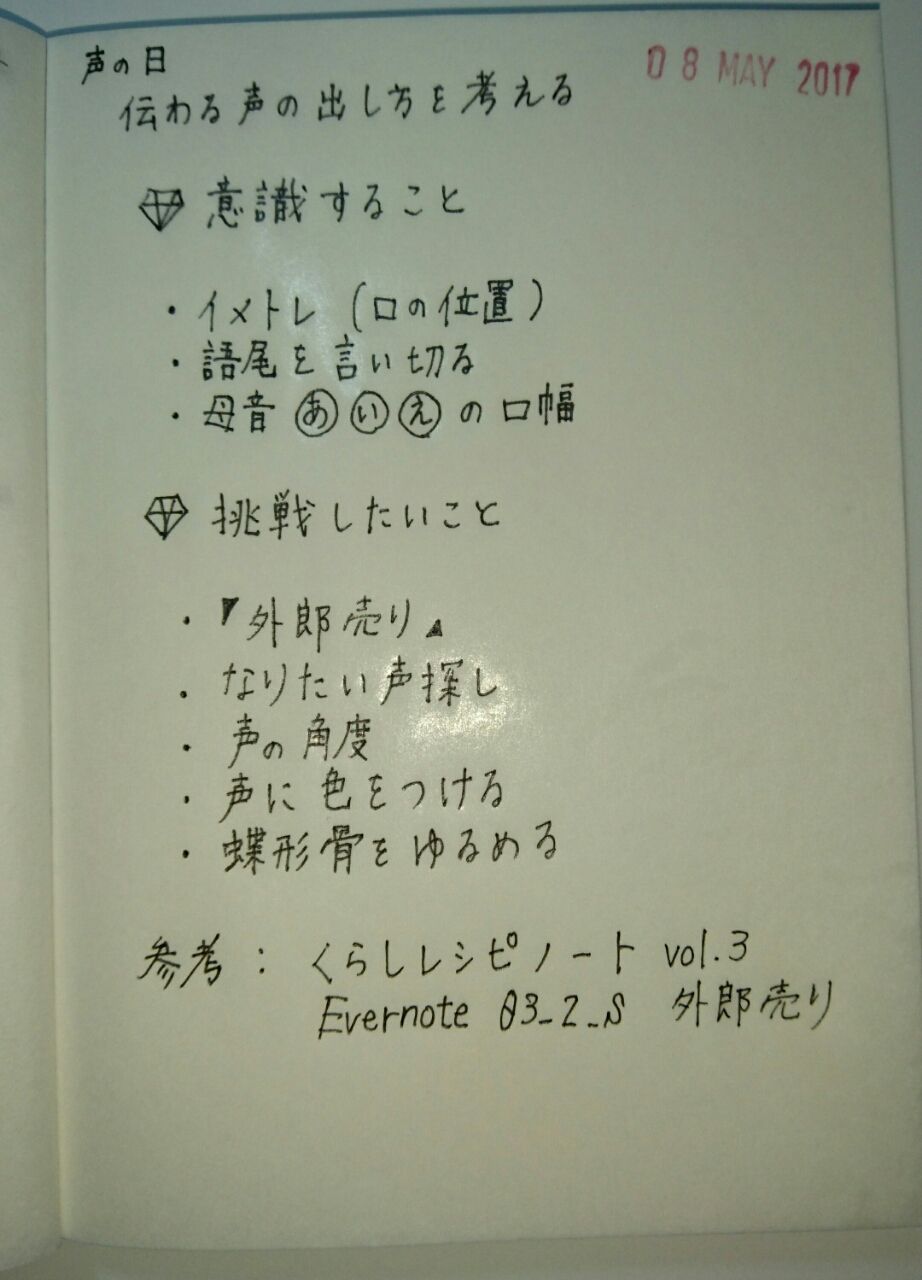 声の日
08 MAY 2017
伝わる声の出し方を考える
意識すること
・イメトレ (口の位置)
・語尾を言い切る
・母音 あ い え の口幅
挑戦したいこと
・『外郎売り』
・なりたい声探し
・声の角度
・声に色をつける
・蝶形骨をゆるめる
参考 : くらしレシピノート vol.3
Evernote 03_2_S 外郎売り